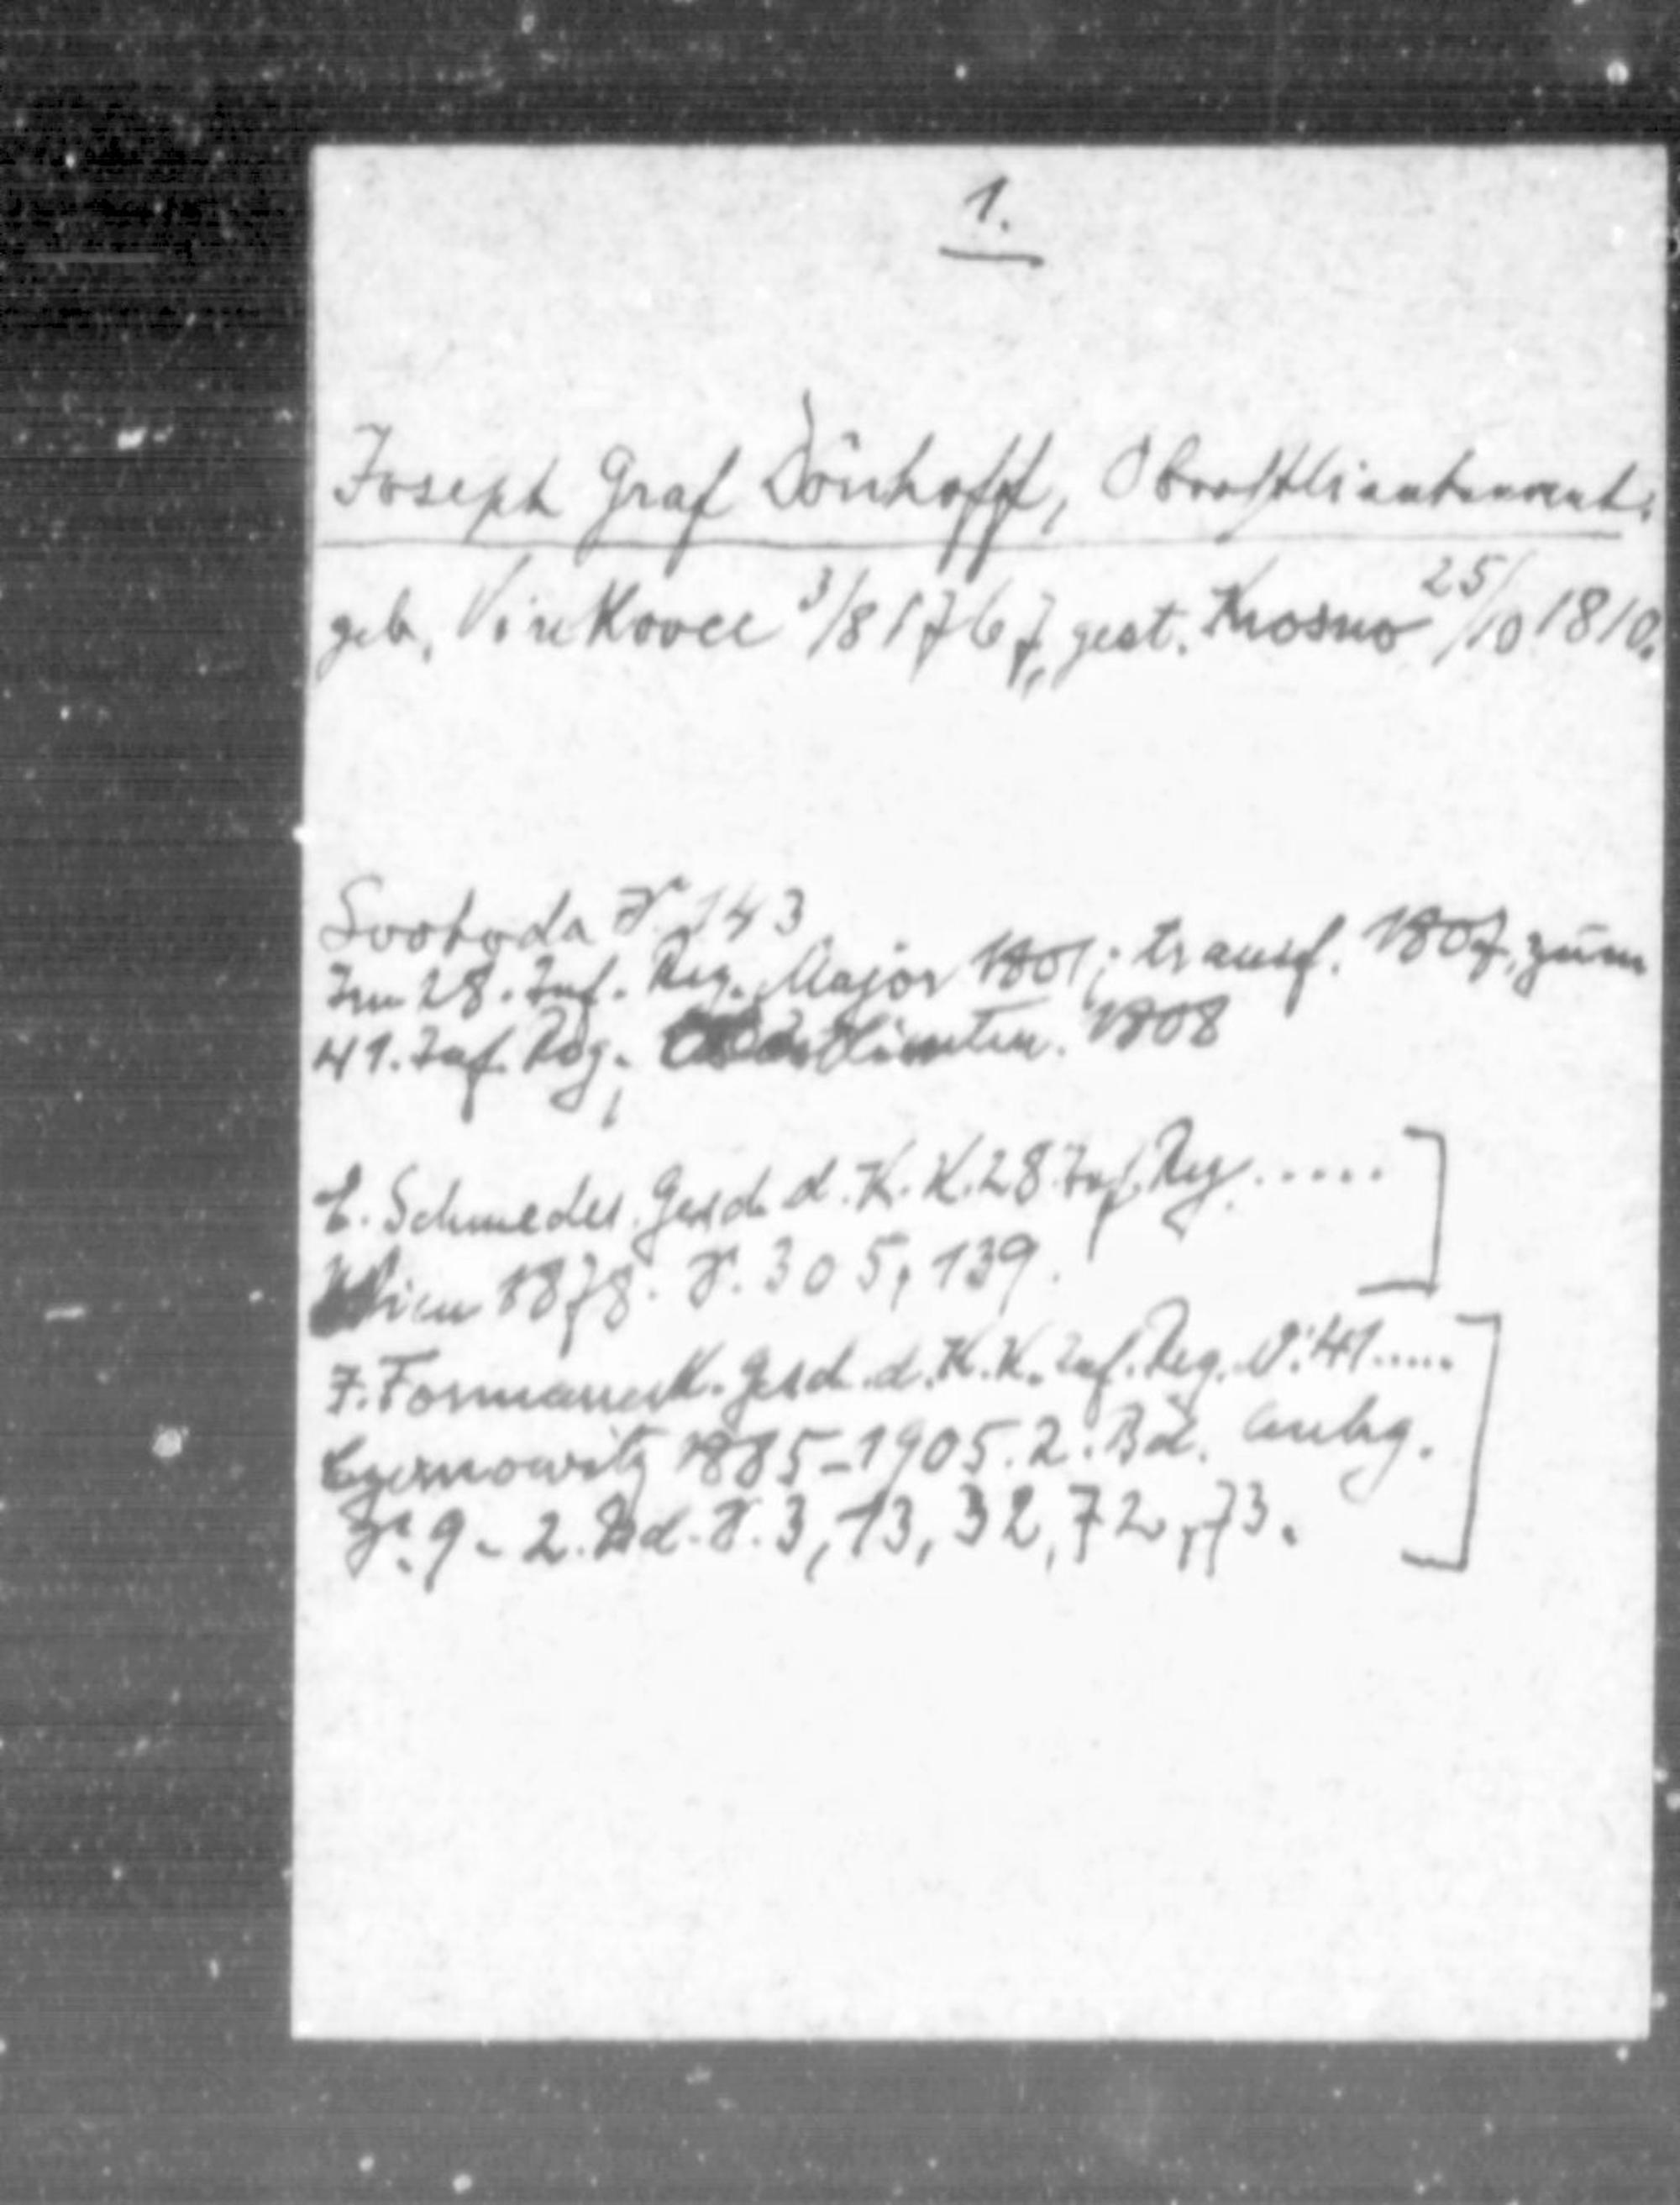 1.
Joseph Graf Dönhoff, Oberstlieutenant.
geb. Vinkovce 3/8 1767, gest. Krosno 25/10 1810.
Svoboda S. 143
Im 28. Inf. Reg. Major 1801; transf. 1807, zum
41. Inf. Reg.; Oberstlieuten. 1808
E. Schmedes. Gesch. d. K. K. 28. Inf. Reg. .....
Wien 1878. S. 305, 139.
F. Formaneck. Gesch. d. K. K. Inf. Reg. N: 41.....
Czernowitz 1885-1905. 2. Bd. Anhg.
S. 9 - 2. Bd. S. 3, 13, 32, 72, 73.